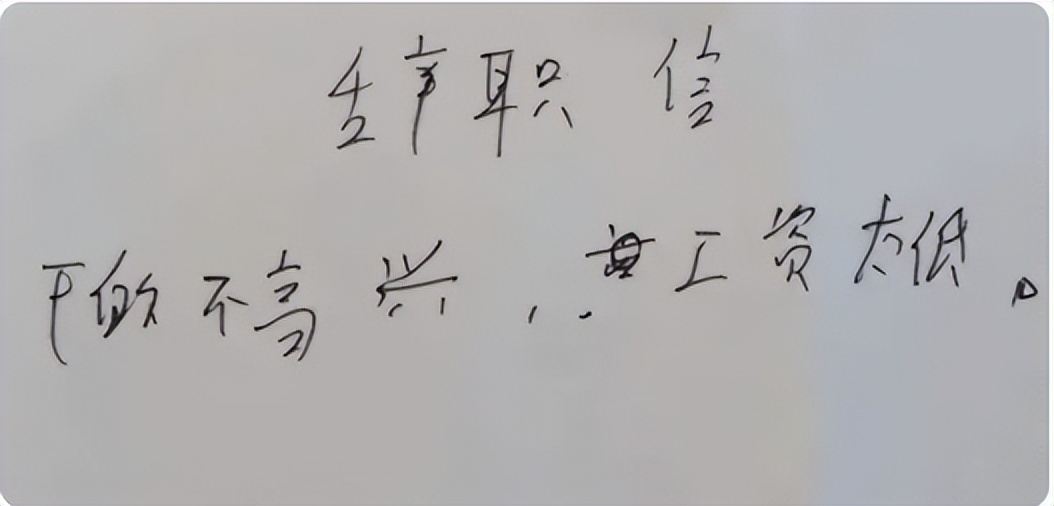 辞职信
干的不高兴,工资太低。